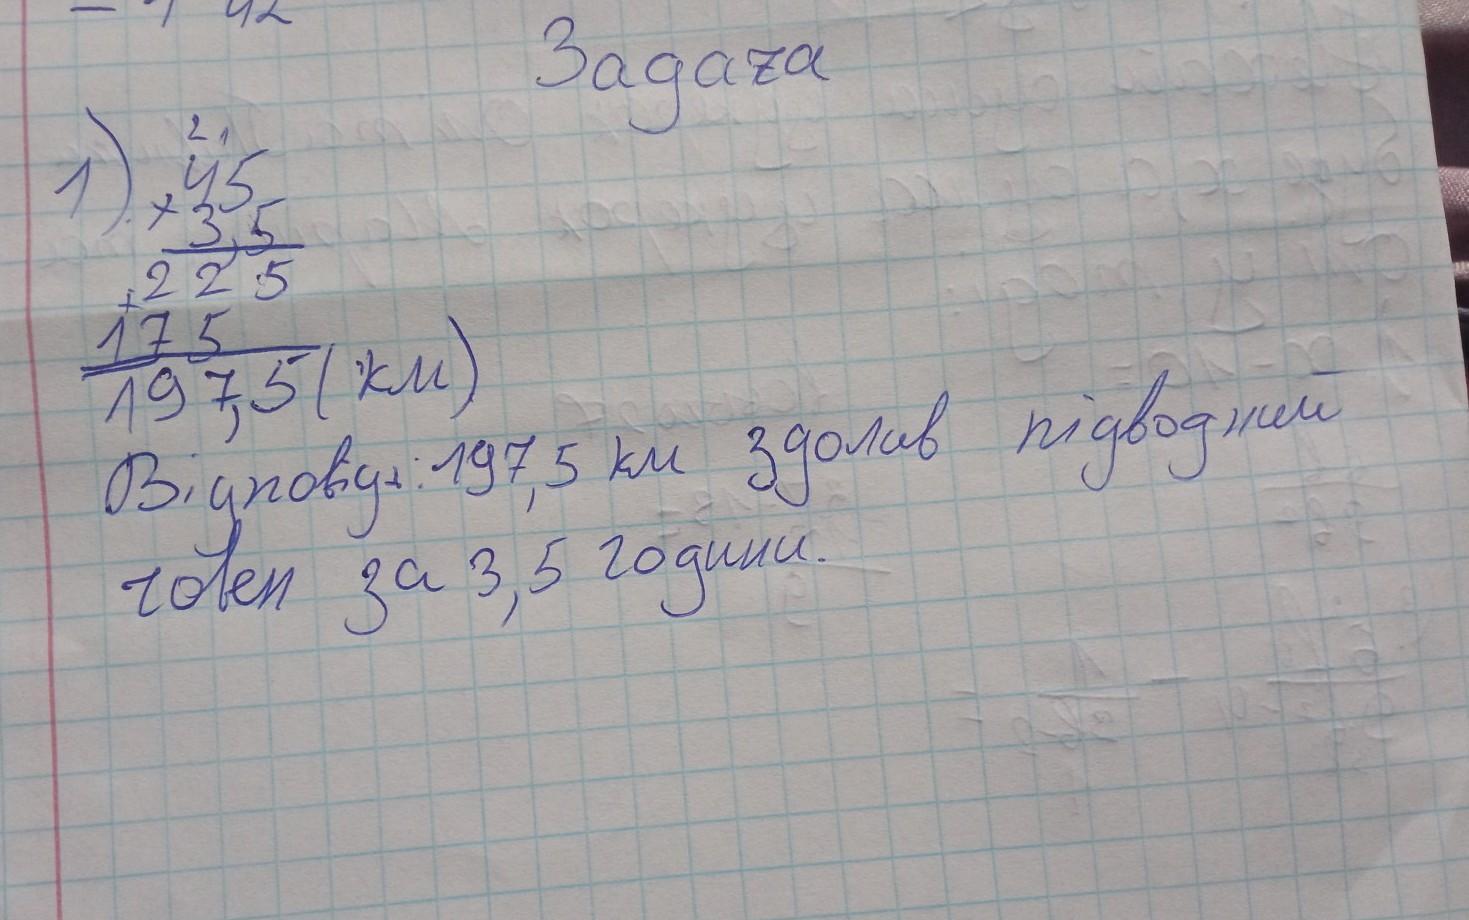 Задача
1). 2 1
45
× 3,5
+ 2 2 5
1 7 5
1 9 7,5 (км)
Відповідь: 197,5 км здолав підводний
човен за 3,5 години.